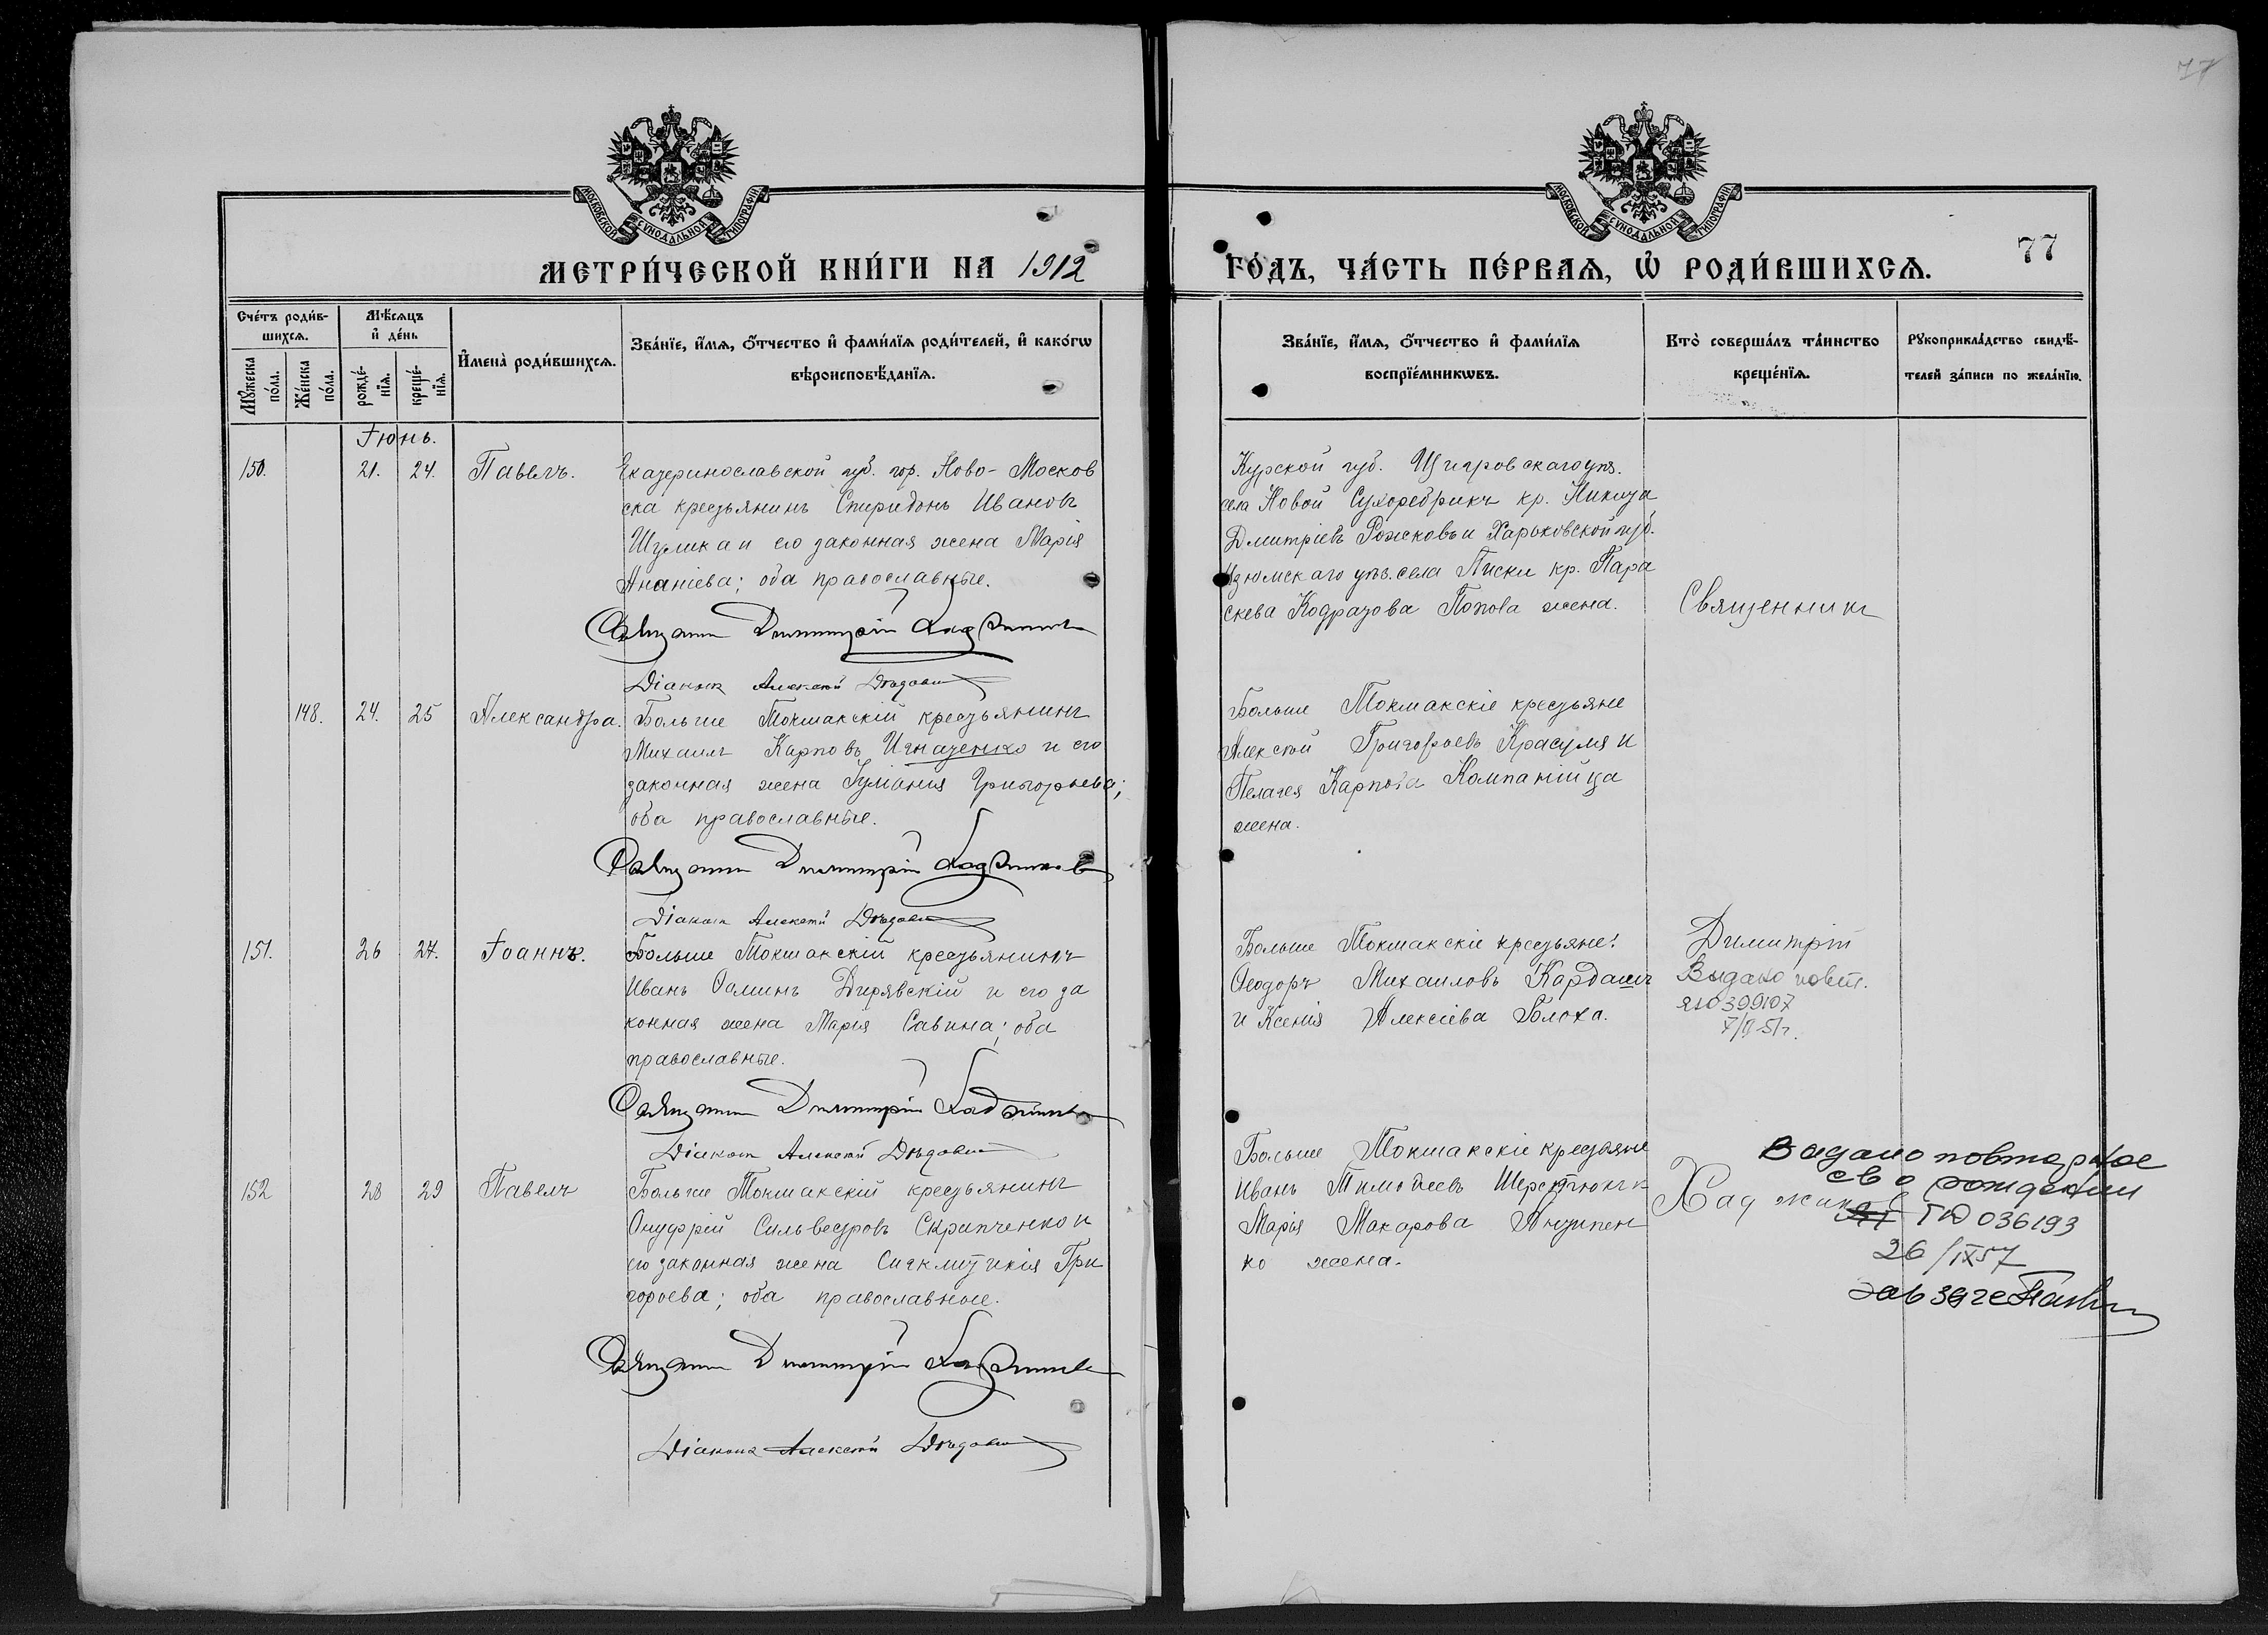 77
МОСКОВСКОЙ СѴНОДАЛЬНОЙ ТИПОГРАФІИ
МОСКОВСКОЙ СѴНОДАЛЬНОЙ ТИПОГРАФІИ
МЕТРИ́ЧЕСКОЙ КНИ́ГИ НА 1912
ГО́ДЪ, ЧА́СТЬ ПЕ́РВАѦ, Ѽ РОДИ́ВШИХСѦ.
77
Сче́тъ роди́в-
шихсѧ.
Мꙋ́жеска по́ла.
Же́нска по́ла.
Мѣ́сѧцъ
и҆ де́нь
рожде́-нїѧ.
креще́-нїѧ.
И҆мена̀ роди́вшихсѧ.
Зва́нїе, и҆́мѧ, ѻ҆́тчество и҆ фами́лїѧ роди́телей, и҆ како́гѡ
вѣроисповѣ́данїѧ.
Зва́нїе, и҆́мѧ, ѻ҆́тчество и҆ фами́лїѧ
воспрїе́мникѡвъ.
Кто̀ соверша́лъ та́инство
креще́нїѧ.
Рꙋкоприкла́дство свидѣ́-
телей за́писи по жела́нїю.
Іюнь.
150. 21. 24. Павелъ.
Екатеринославской губ. гор. Ново-Москов
ска крестьянинъ Спиридонъ Ивановъ
Шулика и его законная жена Марія
Ананіева; оба православные.
Димитрій
Діаконъ Алексѣй
Курской губ. Щигровскаго уѣз.
села Новой Сухоребрикъ кр. Никита
Дмитріевъ Рожковъ и Харьковской губ.
Изюмскаго уѣз. села Писки кр. Пара
скева Кодратова Попова жена.
Священникъ
148. 24. 25 Александра.
Больше Токмакскій крестьянинъ
Михаилъ Карповъ Игнатенко и его
законная жена Іуліанія Григорьева;
оба православные.
Димитрій
Діаконъ Алексѣй
Больше Токмакскіе крестьяне
Алексѣй Григорьевъ Красуля и
Пелагея Карпова Компанійца
жена.
151. 26 27. Іоаннъ.
Больше Токмакскій крестьянинъ
Иванъ Ѳоминъ Дирявскій и его за
конная жена Марія Савина; оба
православные.
Димитрій
Діаконъ Алексѣй
Больше Токмакскіе крестьяне:
Ѳеодоръ Михаиловъ Кардашъ
и Ксенія Алексіева Блоха.
Димитрій
Выдано повт.
ЯЮ 399107
152 28 29 Павелъ
Больше Токмакскій крестьянинъ
Онуфрій Сильвестровъ Скрипченко и
его законная жена Синклитикія Гри
горьева; оба православные.
Димитрій
Діаконъ Алексѣй
Больше Токмакскіе крестьяне
Иванъ Тимоѳеевъ Шерстюкъ и
Марія Макарова Антипен
ко жена.
Хаджинов
Выдано повторное
св о рождении
ГЮ 036193
26/IX57
зав загс